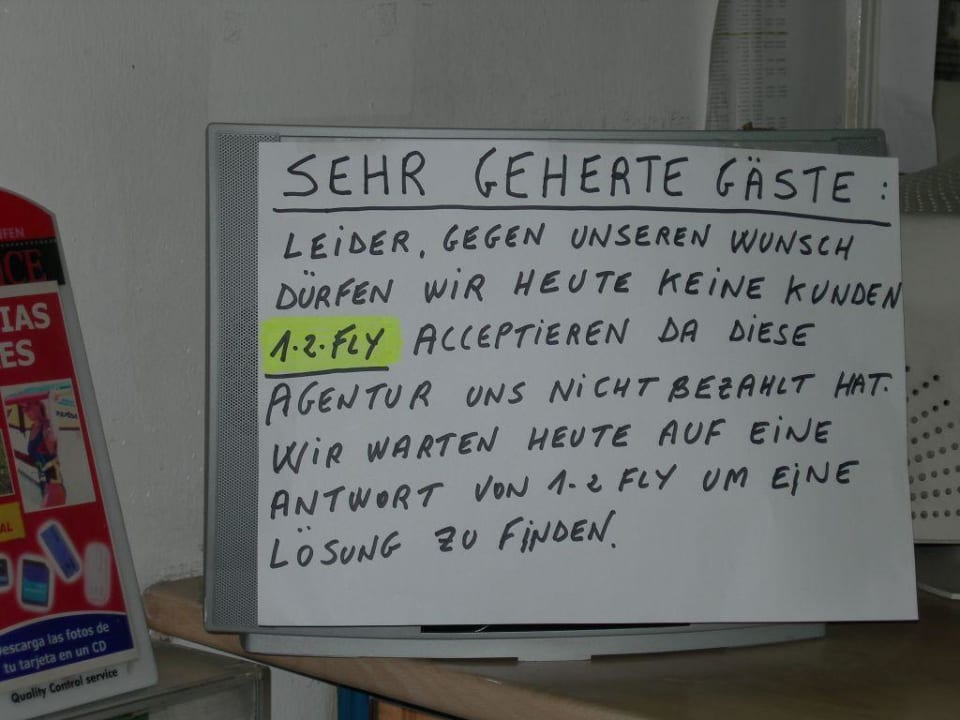 SEHR GEHERTE GÄSTE :
LEIDER, GEGEN UNSEREN WUNSCH
DÜRFEN WIR HEUTE KEINE KUNDEN
1.2.FLY ACCEPTIEREN DA DIESE
AGENTUR UNS NICHT BEZAHLT HAT.
WIR WARTEN HEUTE AUF EINE
ANTWORT VON 1-2 FLY UM EINE
LÖSUNG ZU FINDEN.
FEN
ICE
IAS
ES
AL
Descarga las fotos de
tu tarjeta en un CD
Quality Control service